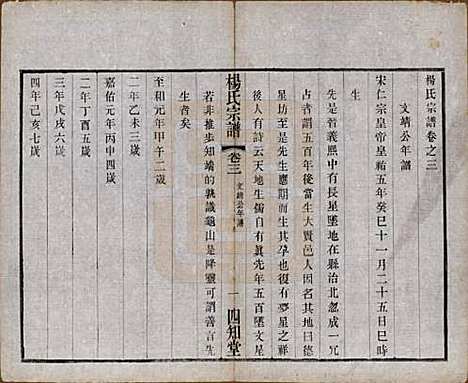 楊氏宗譜卷之三
文靖公年譜
宋仁宗皇帝皇祐五年癸巳十一月二十五日巳時
生
先是晉義熙中有長星墜地在縣治北忽成一穴
占者謂五百年後當生大賢邑人因名其地曰德
星坊至是先生應期而生其孕也復有夢星之祥
後人有詩云天地生儒自有眞先年五百墜文星
若非推步知端的孰識龜山是降靈可謂善言先
生者矣
楊氏宗譜
卷三
文靖公年譜
一
四知堂
至和元年甲午二歲
二年乙未三歲
嘉佑元年丙申四歲
二年丁酉五歲
三年戊戌六歲
四年己亥七歲